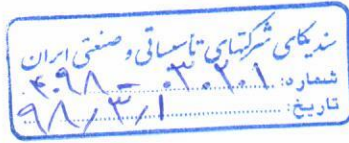 سندیکای شرکتهای تأسیساتی و صنعتی ایران
شماره: ۴۰۹۸ – ۰۳۰۲۰۱
تاریخ: ۹۸/۳/۱